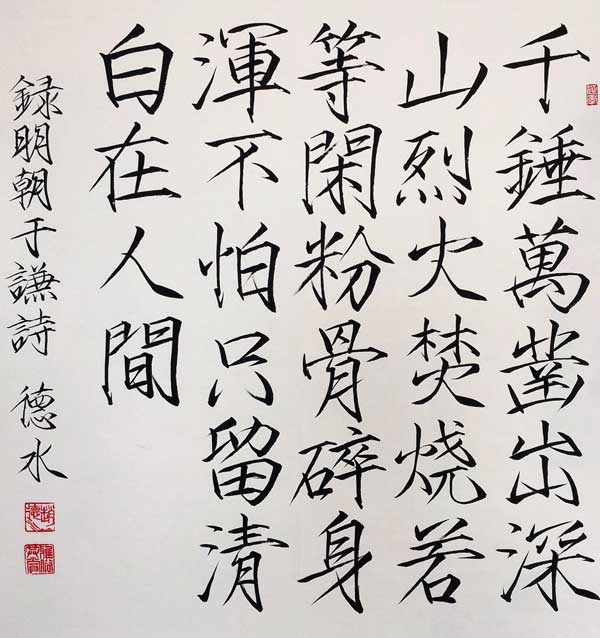 千錘萬凿出深
山烈火焚烧若
等閑粉骨碎身
渾不怕只留清
白在人間
録明朝于謙詩 德水